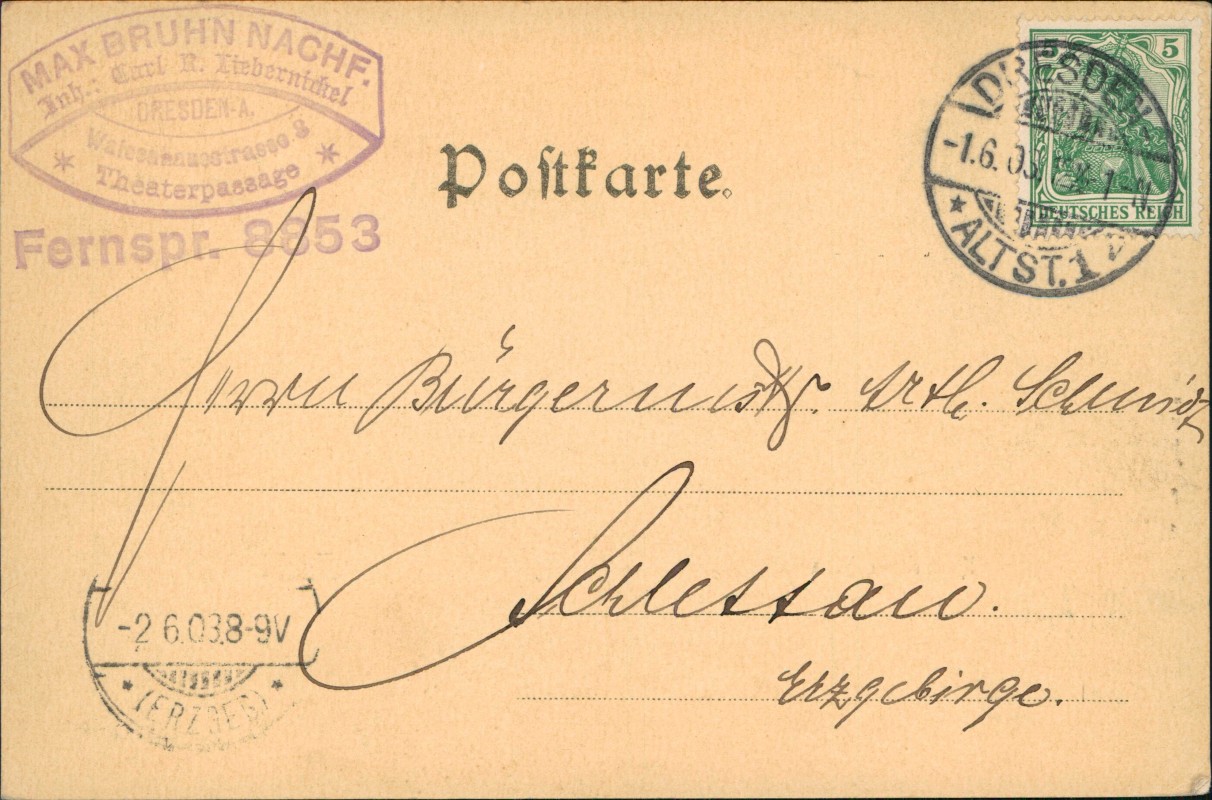 MAX BRUHN NACHF.
Inh.: Curl R. Liebernickel
DRESDEN-A.
Waisenhausstrasse 8
* Theaterpassage *
Fernspr. 8853
Postkarte.
5 5
DEUTSCHES REICH
DRESDEN
-1.6.03. 1-N.
* ALTST. 1
Herrn Bürgermstr. Schmidt
Schlettau.
Erzgebirge.
-2 6.03.8-9V
* (ERZGEB) *